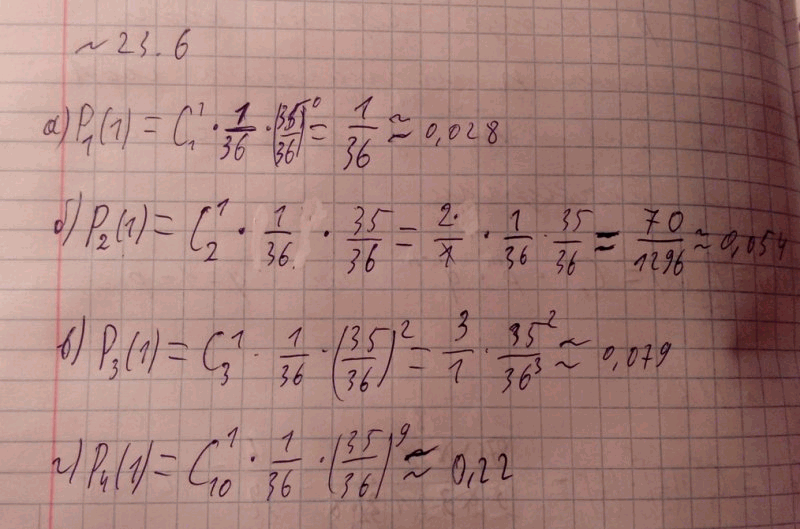 ~ 23.6
а) P₁(1) = C₁¹ · 1/36 · (35/36)⁰ = 1/36 ≈ 0,028
б) P₂(1) = C₂¹ · 1/36 · 35/36 = 2/1 · 1/36 · 35/36 = 70/1296 ≈ 0,054
в) P₃(1) = C₃¹ · 1/36 · (35/36)² = 3/1 · 35²/36³ ≈ 0,079
г) P₄(1) = C₁₀¹ · 1/36 · (35/36)⁹ ≈ 0,22